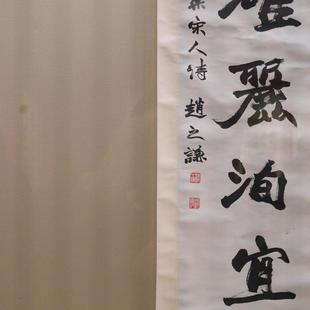 麗洵宜
宋人詩 趙之謙